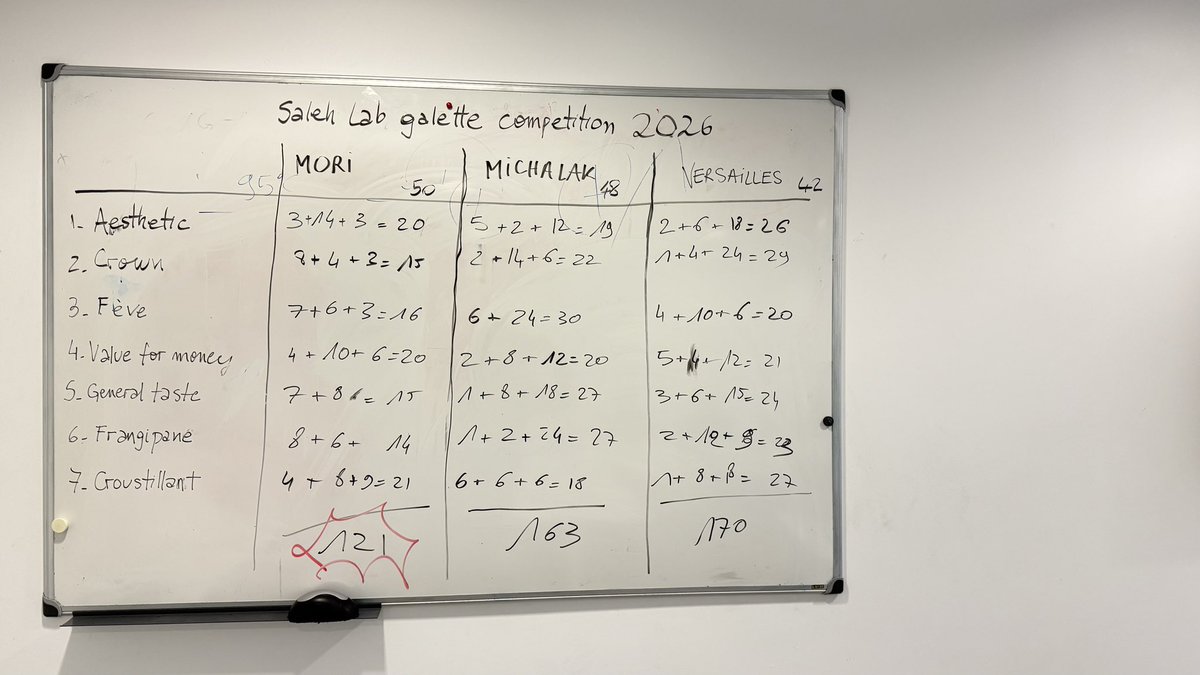 Saleh Lab galette competition 2026
MORI 50 MICHALAK 48 VERSAILLES 42
1. Aesthetic 3+14+3=20 5+2+12=19 2+6+18=26
2. Crown 8+4+3=15 2+14+6=22 1+4+24=29
3. Fève 7+6+3=16 6+24=30 4+10+6=20
4. Value for money 4+10+6=20 2+8+12=20 5+4+12=21
5. General taste 7+8=15 1+8+18=27 3+6+15=24
6. Frangipane 8+6+ 14 1+2+24=27 2+12+9=23
7. Croustillant 4+8+9=21 6+6+6=18 1+8+18=27
121 163 170